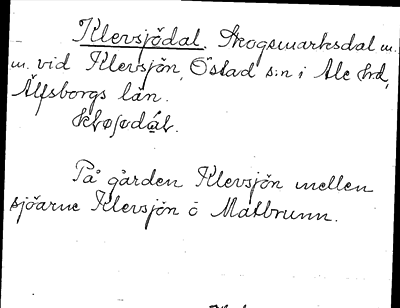 Klevsjödal. Skogsmarksdal m.
m. vid Klevsjön, Östad s:n i Ale hd,
Älfsborgs län.
På gården Klevsjön mellen
sjöarne Klevsjön o Matbrunn.